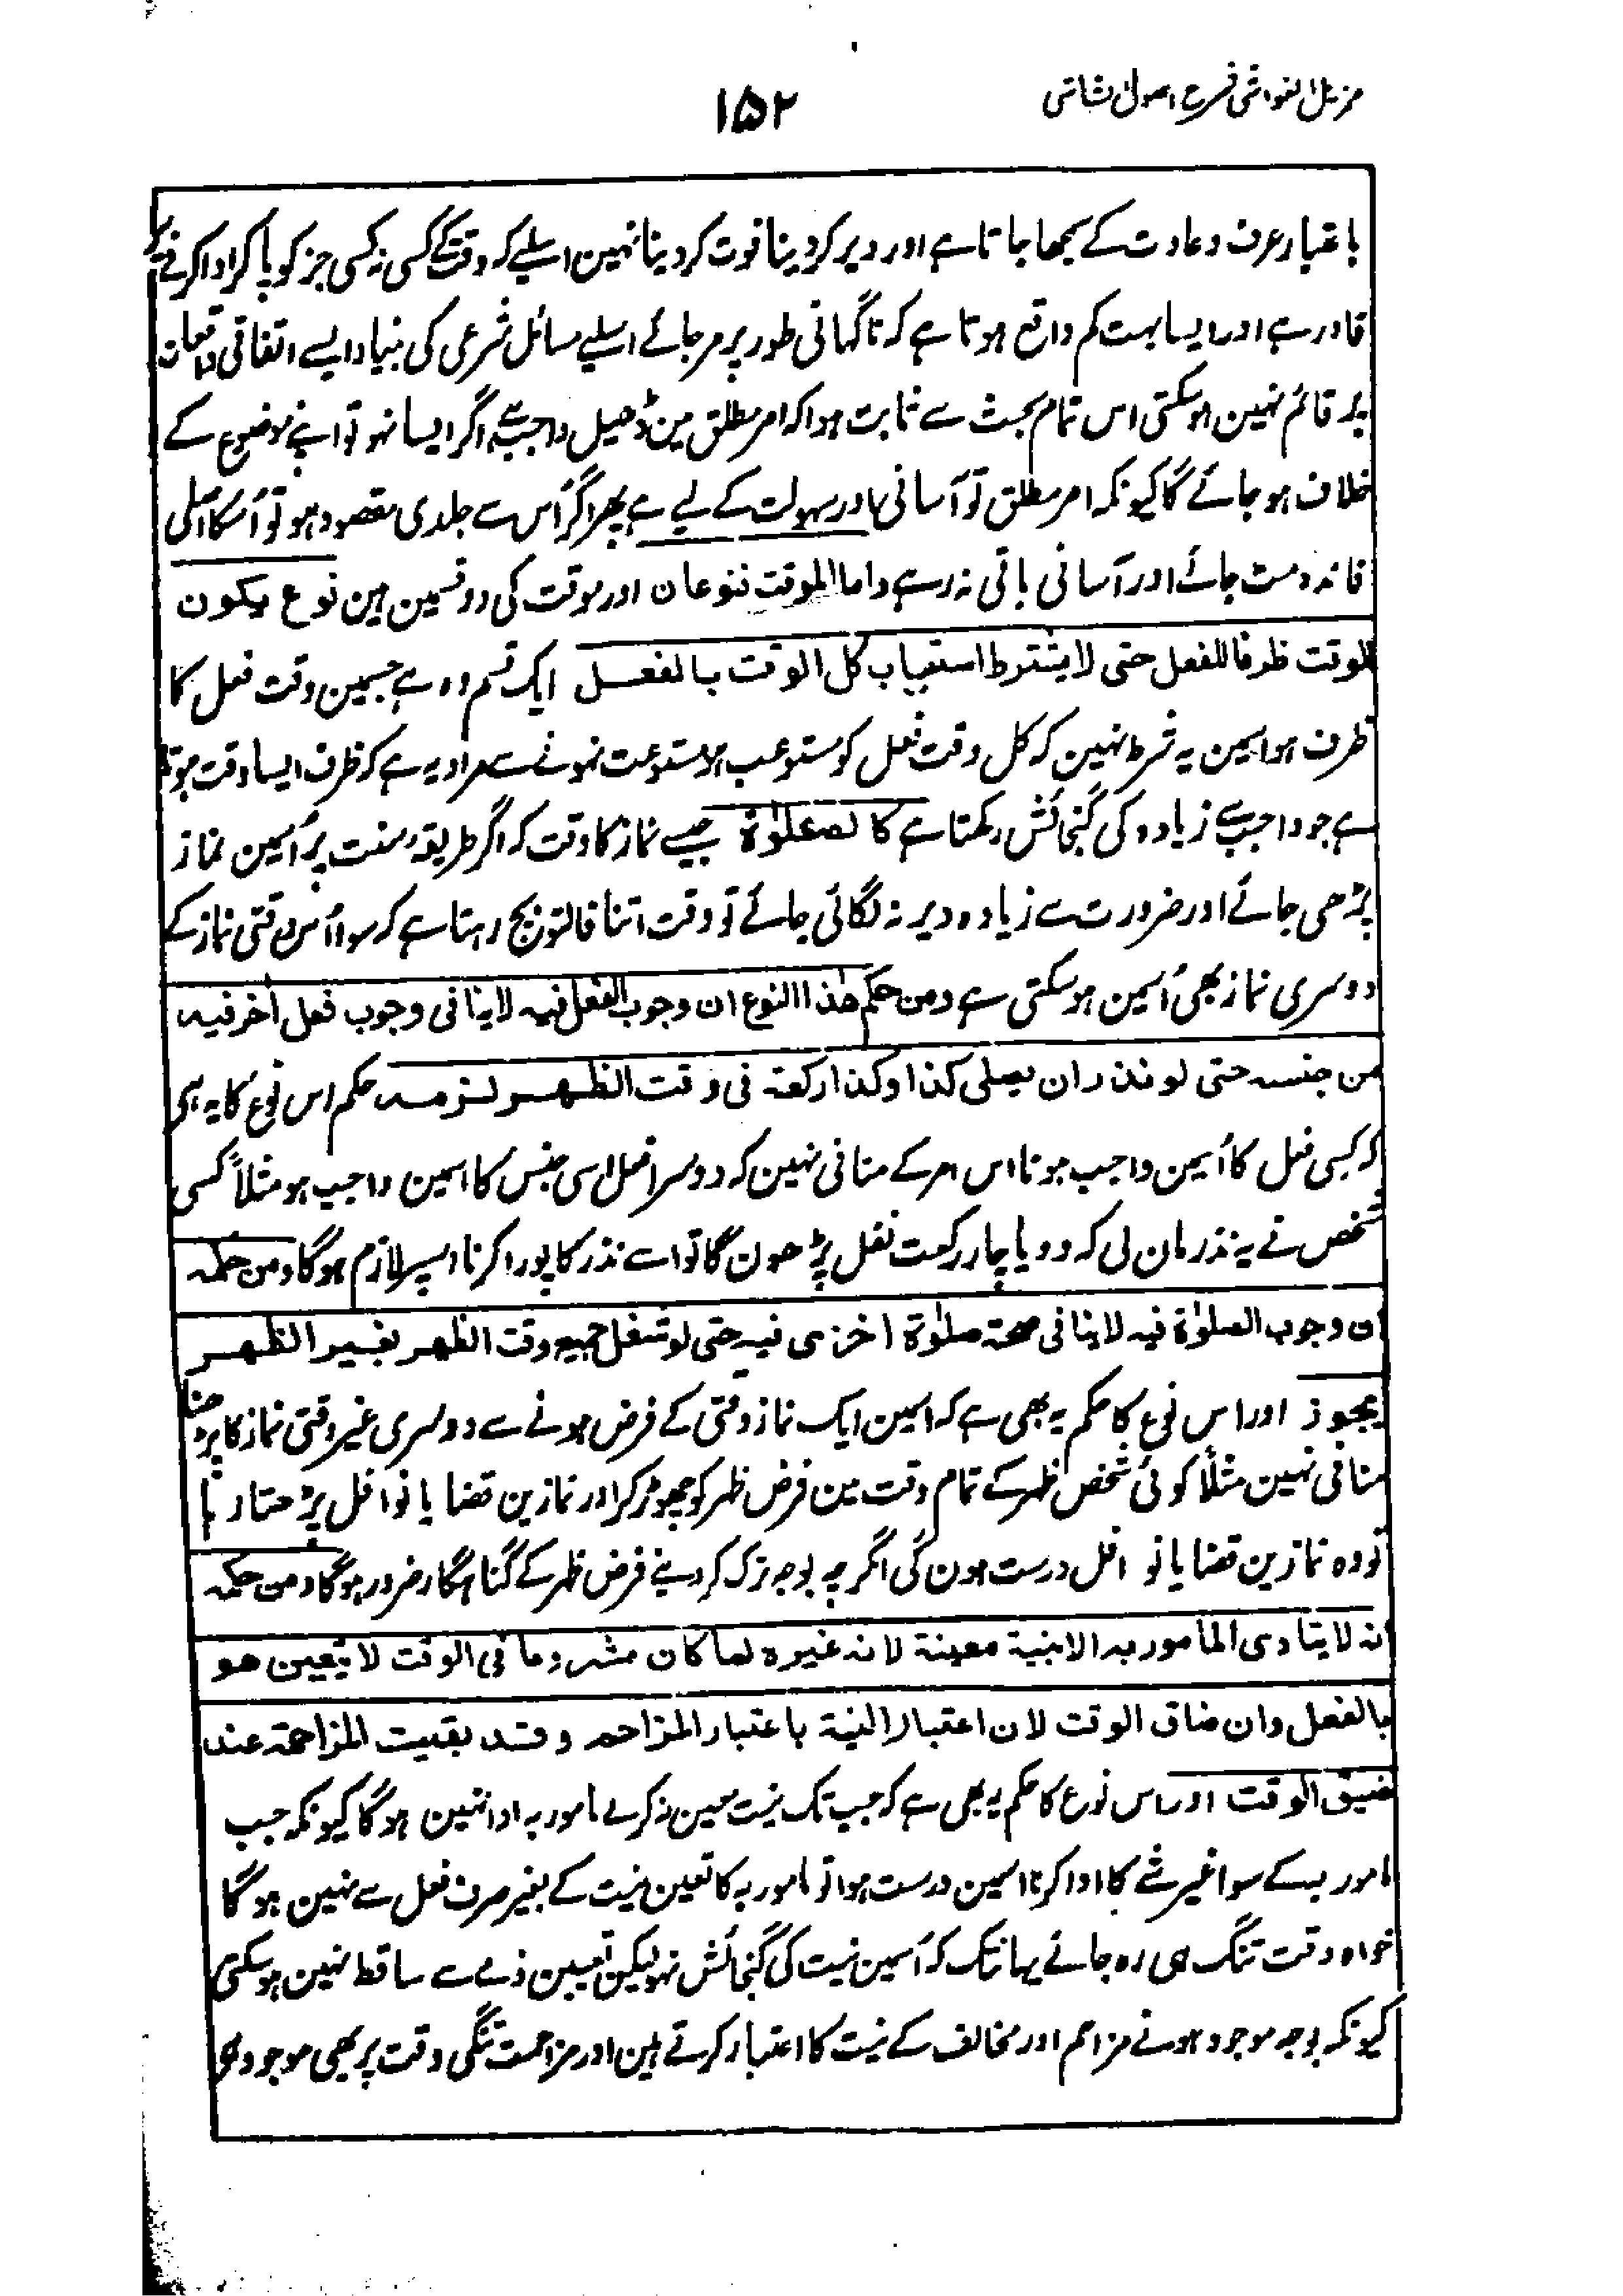 مزیل الغواشی شرح اصول الشاشی
۱۵۲
باعتبار عرف و عادت کے سمجھا جاتا ہے اور دیر کر دینا فوت کر دینا نہین اسلیے کہ وقت کے کسی نہ کسی جز کو پا کر ادا کرنے پر
قادر ہے اور ایسا بہت کم واقع ہوتا ہے کہ ناگہانی طور پر مر جائے اسلیے مسائل شرعی کی بنیاد ایسے اتفاقی واقعات
پر قائم نہین ہوسکتی اس تمام بحث سے ثابت ہوا کہ امر مطلق مین ڈھیل واجب ہے اگر ایسا نہو تو اپنے موضوع کے
خلاف ہو جائے گا کیونکہ امر مطلق تو آسانی اور سہولت کے لیے ہے پھر اگر اُس سے جلدی مقصود ہو تو اُسکا اصلی
فائدہ مٹ جائے اور آسانی باقی نہ رہے واما الموقت فنوعان اور موقت کی دو قسمین ہین نوع یکون
الوقت ظرفا للفعل حتی لا یشترط استیعاب کل الوقت بالفعل ایک قسم وہ ہے جسمین وقت فعل کا
ظرف ہو اسمین یہ شرط نہین کہ کل وقت فعل کو مستوعب ہو مستوعب نہونے سے مراد یہ ہے کہ ظرف ایسا وقت ہوتا
ہے جو واجب سے زیادہ کی گنجائش رکھتا ہے کالصلوٰۃ جیسے نماز کا وقت کہ اگر طریقہ سنت پر اُسمین نماز
پڑھی جائے اور ضرورت سے زیادہ دیر نہ لگائی جائے تو وقت اتنا فالتو بچ رہتا ہے کہ سوا اُس وقتی نماز کے
دوسری نماز بھی اُسمین ہوسکتی ہے ومن حکم ھذا النوع ان وجوب الفعل فیہ لا ینافی وجوب فعل اٰخر فیہ
من جنسہ حتی لو نذر ان یصلی کذا وکذا رکعۃ فی وقت الظھر لزمہ حکم اس نوع کا یہ ہی
کہ کسی فعل کا اُسمین واجب ہونا اس امر کے منافی نہین کہ دوسرا فعل اسی جنس کا اسمین واجب ہو مثلاً کسی
شخص نے یہ نذر مان لی کہ دو یا چار رکعت نفل پڑھون گا تو اسے نذر کا پورا کرنا اسپر لازم ہوگا ومن حکمہ
ان وجوب الصلوٰۃ فیہ لا ینافی صحۃ صلوٰۃ اخریٰ فیہ حتی لو شغل جمیع وقت الظھر بغیر الظھر
یجوز اور اس نوع کا حکم یہ بھی ہے کہ اسمین ایک نماز وقتی کے فرض ہونے سے دوسری غیر وقتی نماز کا پڑھنا
منافی نہین مثلاً کوئی شخص ظہر کے تمام وقت مین فرض ظہر کو چھوڑ کر اور نمازین قضا یا نوافل پڑھتا رہا
تو وہ نمازین قضا یا نوافل درست ہون گی اگرچہ بوجہ ترک کر دینے فرض ظہر کے گناہگار ضرور ہوگا ومن حکمہ
انہ لا یتادی المامور بہ الا بنیۃ معینۃ لانہ غیرہ لما کان مشروعا فی الوقت لا یتعین ھو
بالفعل وان ضاق الوقت لان اعتبار النیۃ باعتبار المزاحم وقد بقیت المزاحمۃ عند
ضیق الوقت اور اس نوع کا حکم یہ بھی ہے کہ جب تک نیت معین نہ کرے مامور بہ ادا نہین ہوگا کیونکہ جب
مامور بہ کے سوا غیر شے کا ادا کرنا اسمین درست ہوا تو مامور بہ کا تعین نیت کے بغیر صرف فعل سے نہین ہوگا
خواہ وقت تنگ ہی رہ جائے یہانتک کہ اُسمین نیت کی گنجائش نہو لیکن تعیین ذمے سے ساقط نہین ہوسکتی
کیونکہ بوجہ موجود ہونے مزاحم اور مخالف کے نیت کا اعتبار کرتے ہین اور مزاحمت تنگی وقت پر بھی موجود ہی